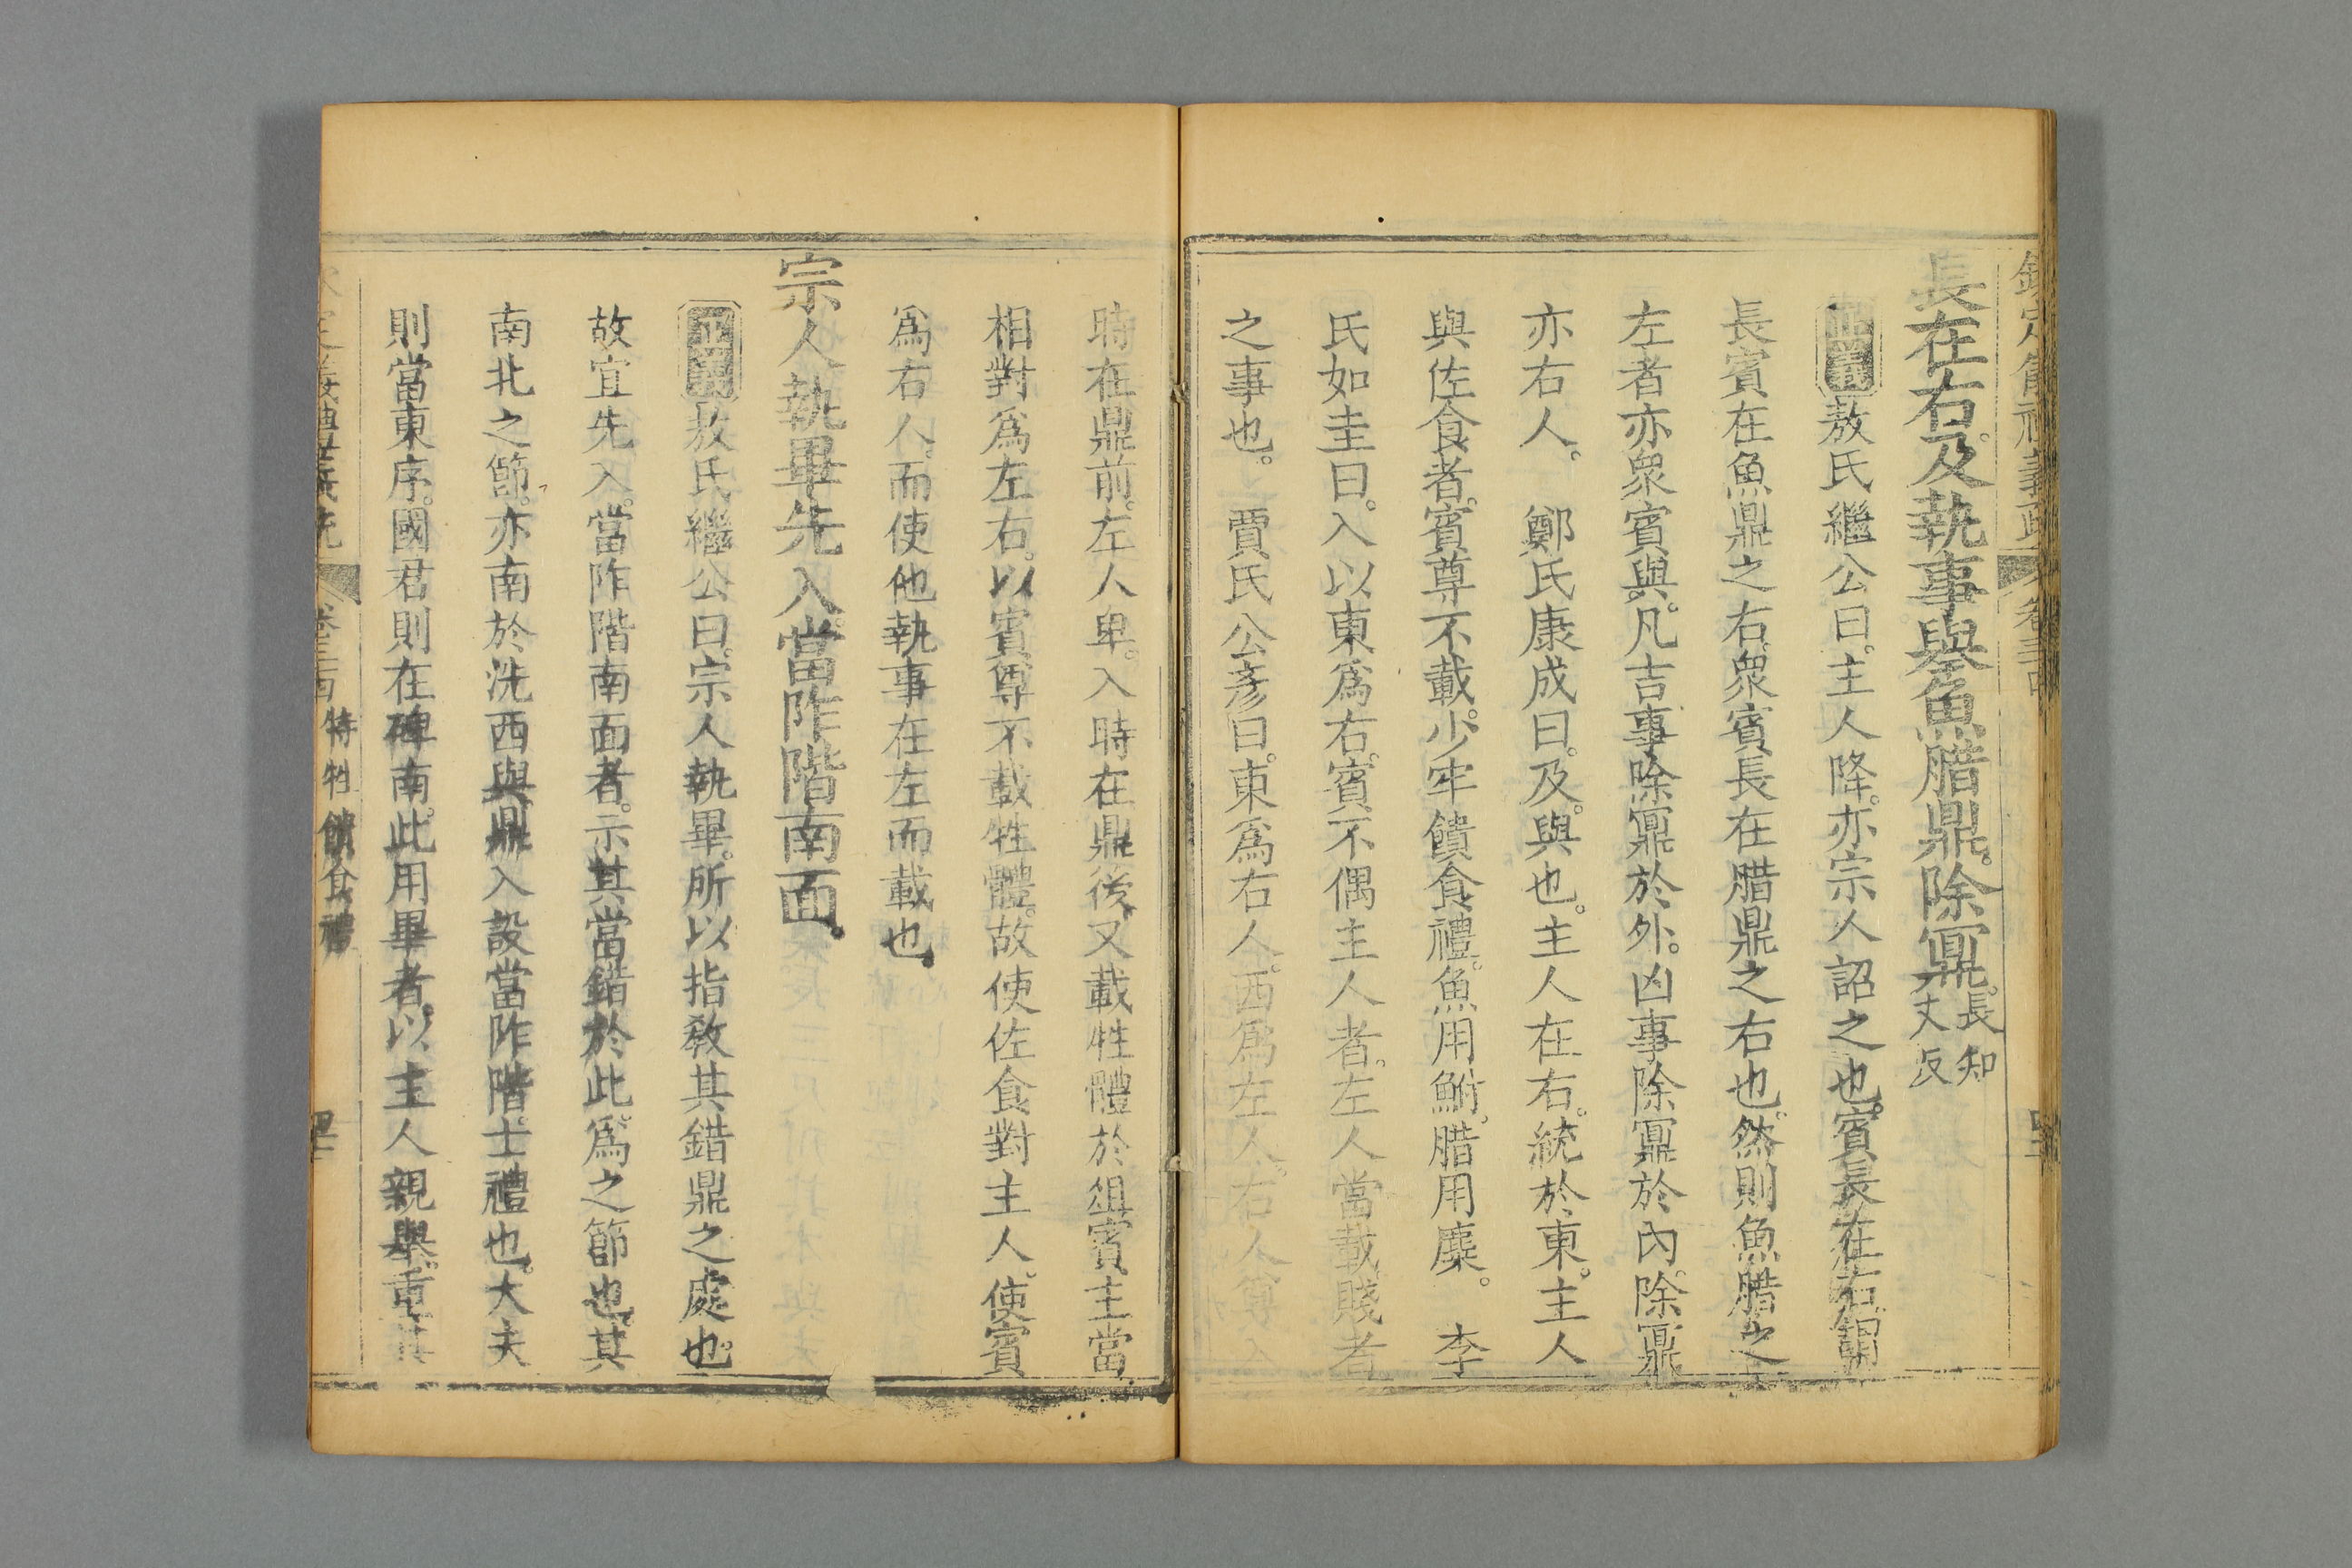 長在右。及執事舉魚腊鼎。除鼏。長知丈反
正義敖氏繼公曰。主人降。亦宗人詔之也。賓長在右。
長賓在魚鼎之右。衆賓長在腊鼎之右也。然則魚腊之
左者亦衆賓與。凡吉事除鼏於外。凶事除鼏於內。除鼏
亦右人。 鄭氏康成曰。及。與也。主人在右。統於東。主人
與佐食者。賓尊不載。少牢饋食禮。魚用鮒。腊用麋。 李
氏如圭曰。入以東爲右。賓不偶主人者。左人當載。賤者
之事也。 賈氏公彥曰。東爲右人。西爲左人。右人尊入
時在鼎前。左人卑。入時在鼎後。又載牲體於俎。賓主當
相對爲左右。以賓尊不載牲體。故使佐食對主人。使賓
爲右人。而使他執事在左而載也。
宗人執畢先入。當阼階南面。
正義敖氏繼公曰。宗人執畢。所以指敎其錯鼎之處也。
故宜先入。當阼階南面者。示其當錯於此。爲之節也。其
南北之節。亦南於洗西與。鼎入設當阼階。士禮也。大夫
則當東序。國君則在碑南。此用畢者。以主人親舉。重其
特牲饋食禮